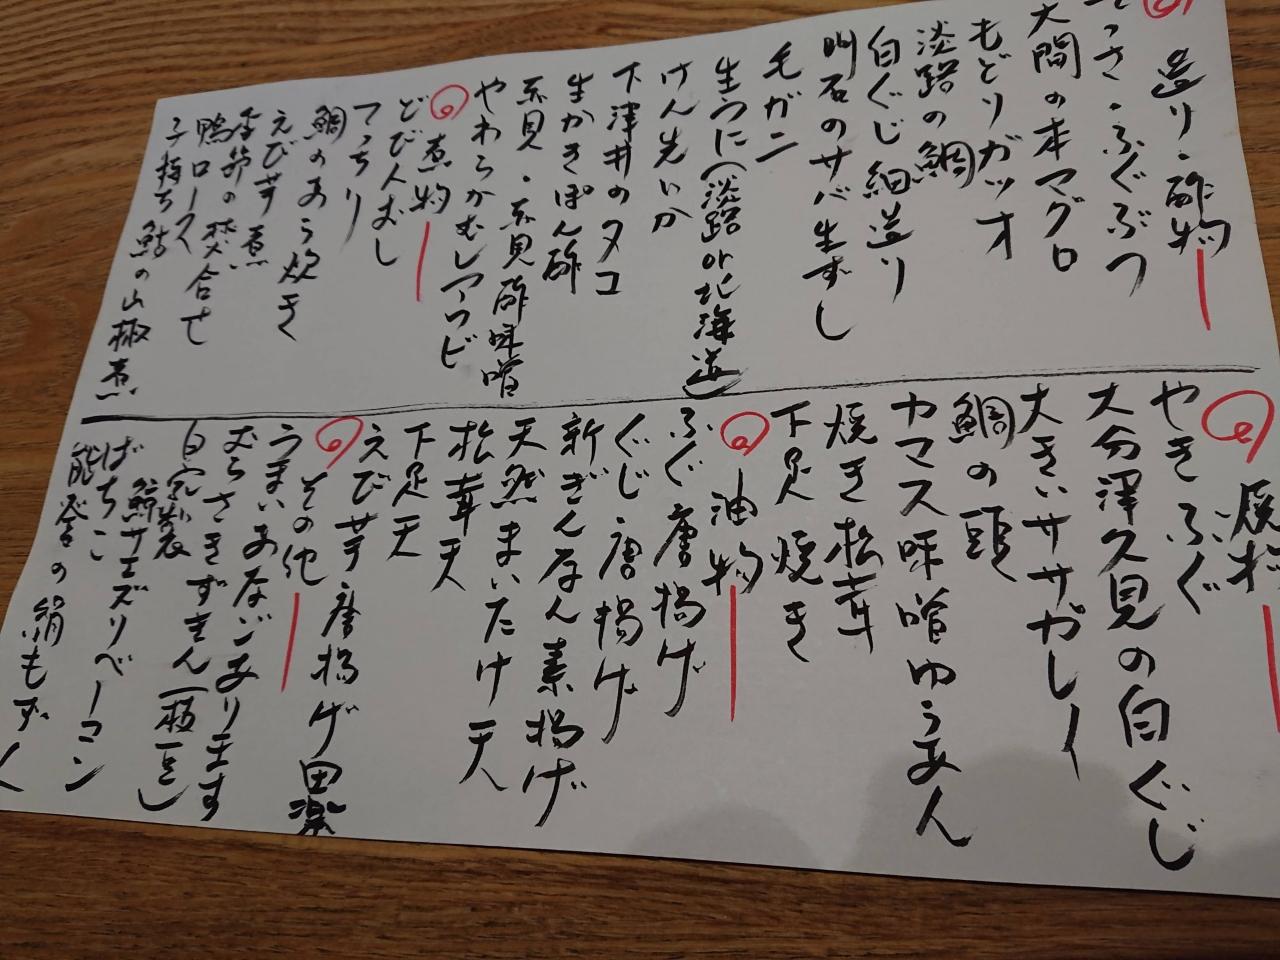 造り・酢物
てっさ・ふぐぶつ
大間の本マグロ
もどりガツオ
淡路の鯛
白ぐじ細造り
明石のサバ生ずし
毛ガニ
生うに(淡路or北海道)
けん先いか
下津井のタコ
生かきぽん酢
赤貝・赤貝酢味噌
やわらかむしアワビ
煮物
どびんむし
てっちり
鯛のあら炊き
えび芋煮
季節の焚合せ
鴨ロース
子持ち鮎の山椒煮
焼物
やきふぐ
大分津久見の白ぐじ
大きいササガレー
鯛の頭
カマス味噌ゆうあん
焼き松茸
下足焼き
油物
ふぐ唐揚げ
ぐじ唐揚げ
新ぎんなん素揚げ
天然まいたけ天
松茸天
下足天
えび芋唐揚げ田楽
その他
うまいあなごあります
むらさきずきん(枝豆)
自家製
鯨サエズリベーコン
ばちこ
能登の絹もずく